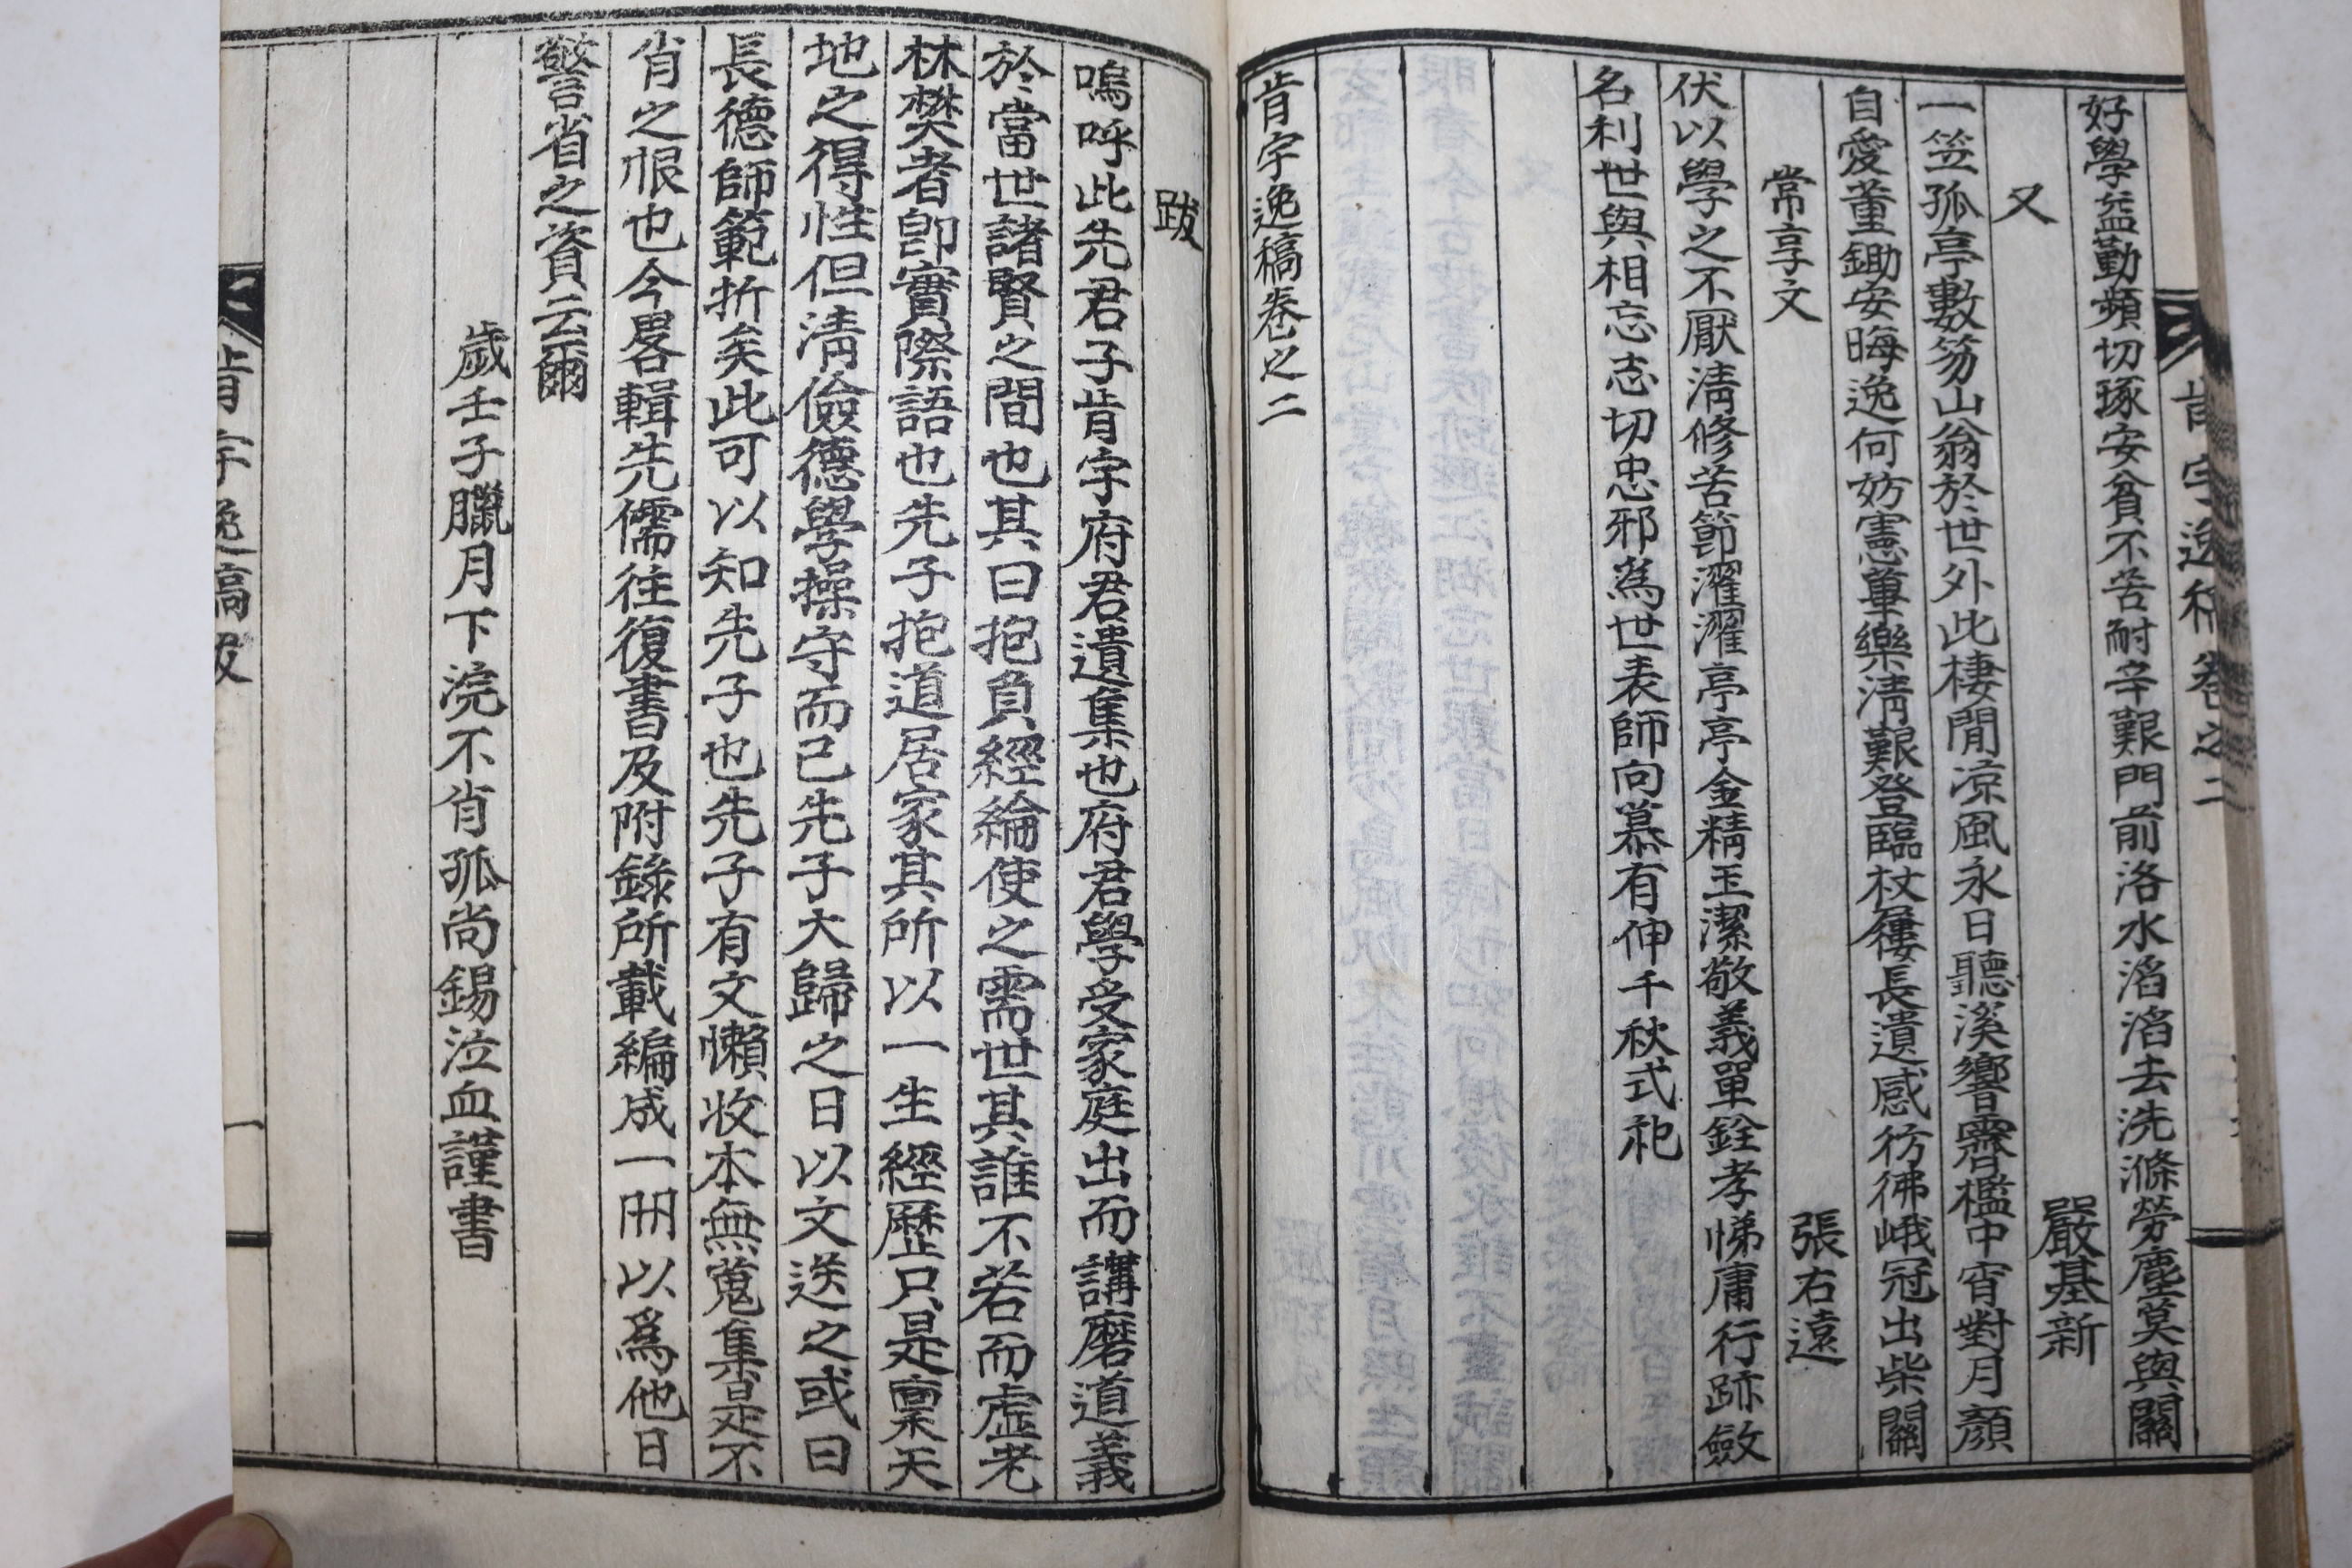 好學益勤頻切琢安貧不苦耐辛艱門前洛水滔滔去洗滌勞塵莫與關
又
嚴基新
一笠孤亭數笏山翁於世外此棲閒凉風永日聽溪響霽檻中宵對月顏
自愛董鋤安晦逸何妨憲簞樂淸艱登臨杖屨長遺感彷彿峨冠出柴關
常享文
張右遠
伏以學之不厭淸修苦節濯濯亭亭金精玉潔敬義單銓孝悌庸行跡斂
名利世與相忘志切忠邪爲世表師向慕有伸千秋式祀
肯宇逸稿卷之二
肯宇逸稿卷之二
跋
嗚呼此先君子肯宇府君遺集也府君學受家庭出而講磨道義
於當世諸賢之間也其曰抱負經綸使之需世其誰不若而虛老
林樊者卽實際語也先子抱道居家其所以一生經歷只是稟天
地之得性但淸儉德學操守而已先子大歸之日以文送之或曰
長德師範折矣此可以知先子也先子有文懶收本無蒐集是不
肖之恨也今畧輯先儒往復書及附錄所載編成一冊以爲他日
警省之資云爾
歲壬子臘月下浣不肖孤尚錫泣血謹書
肯宇逸稿跋
一